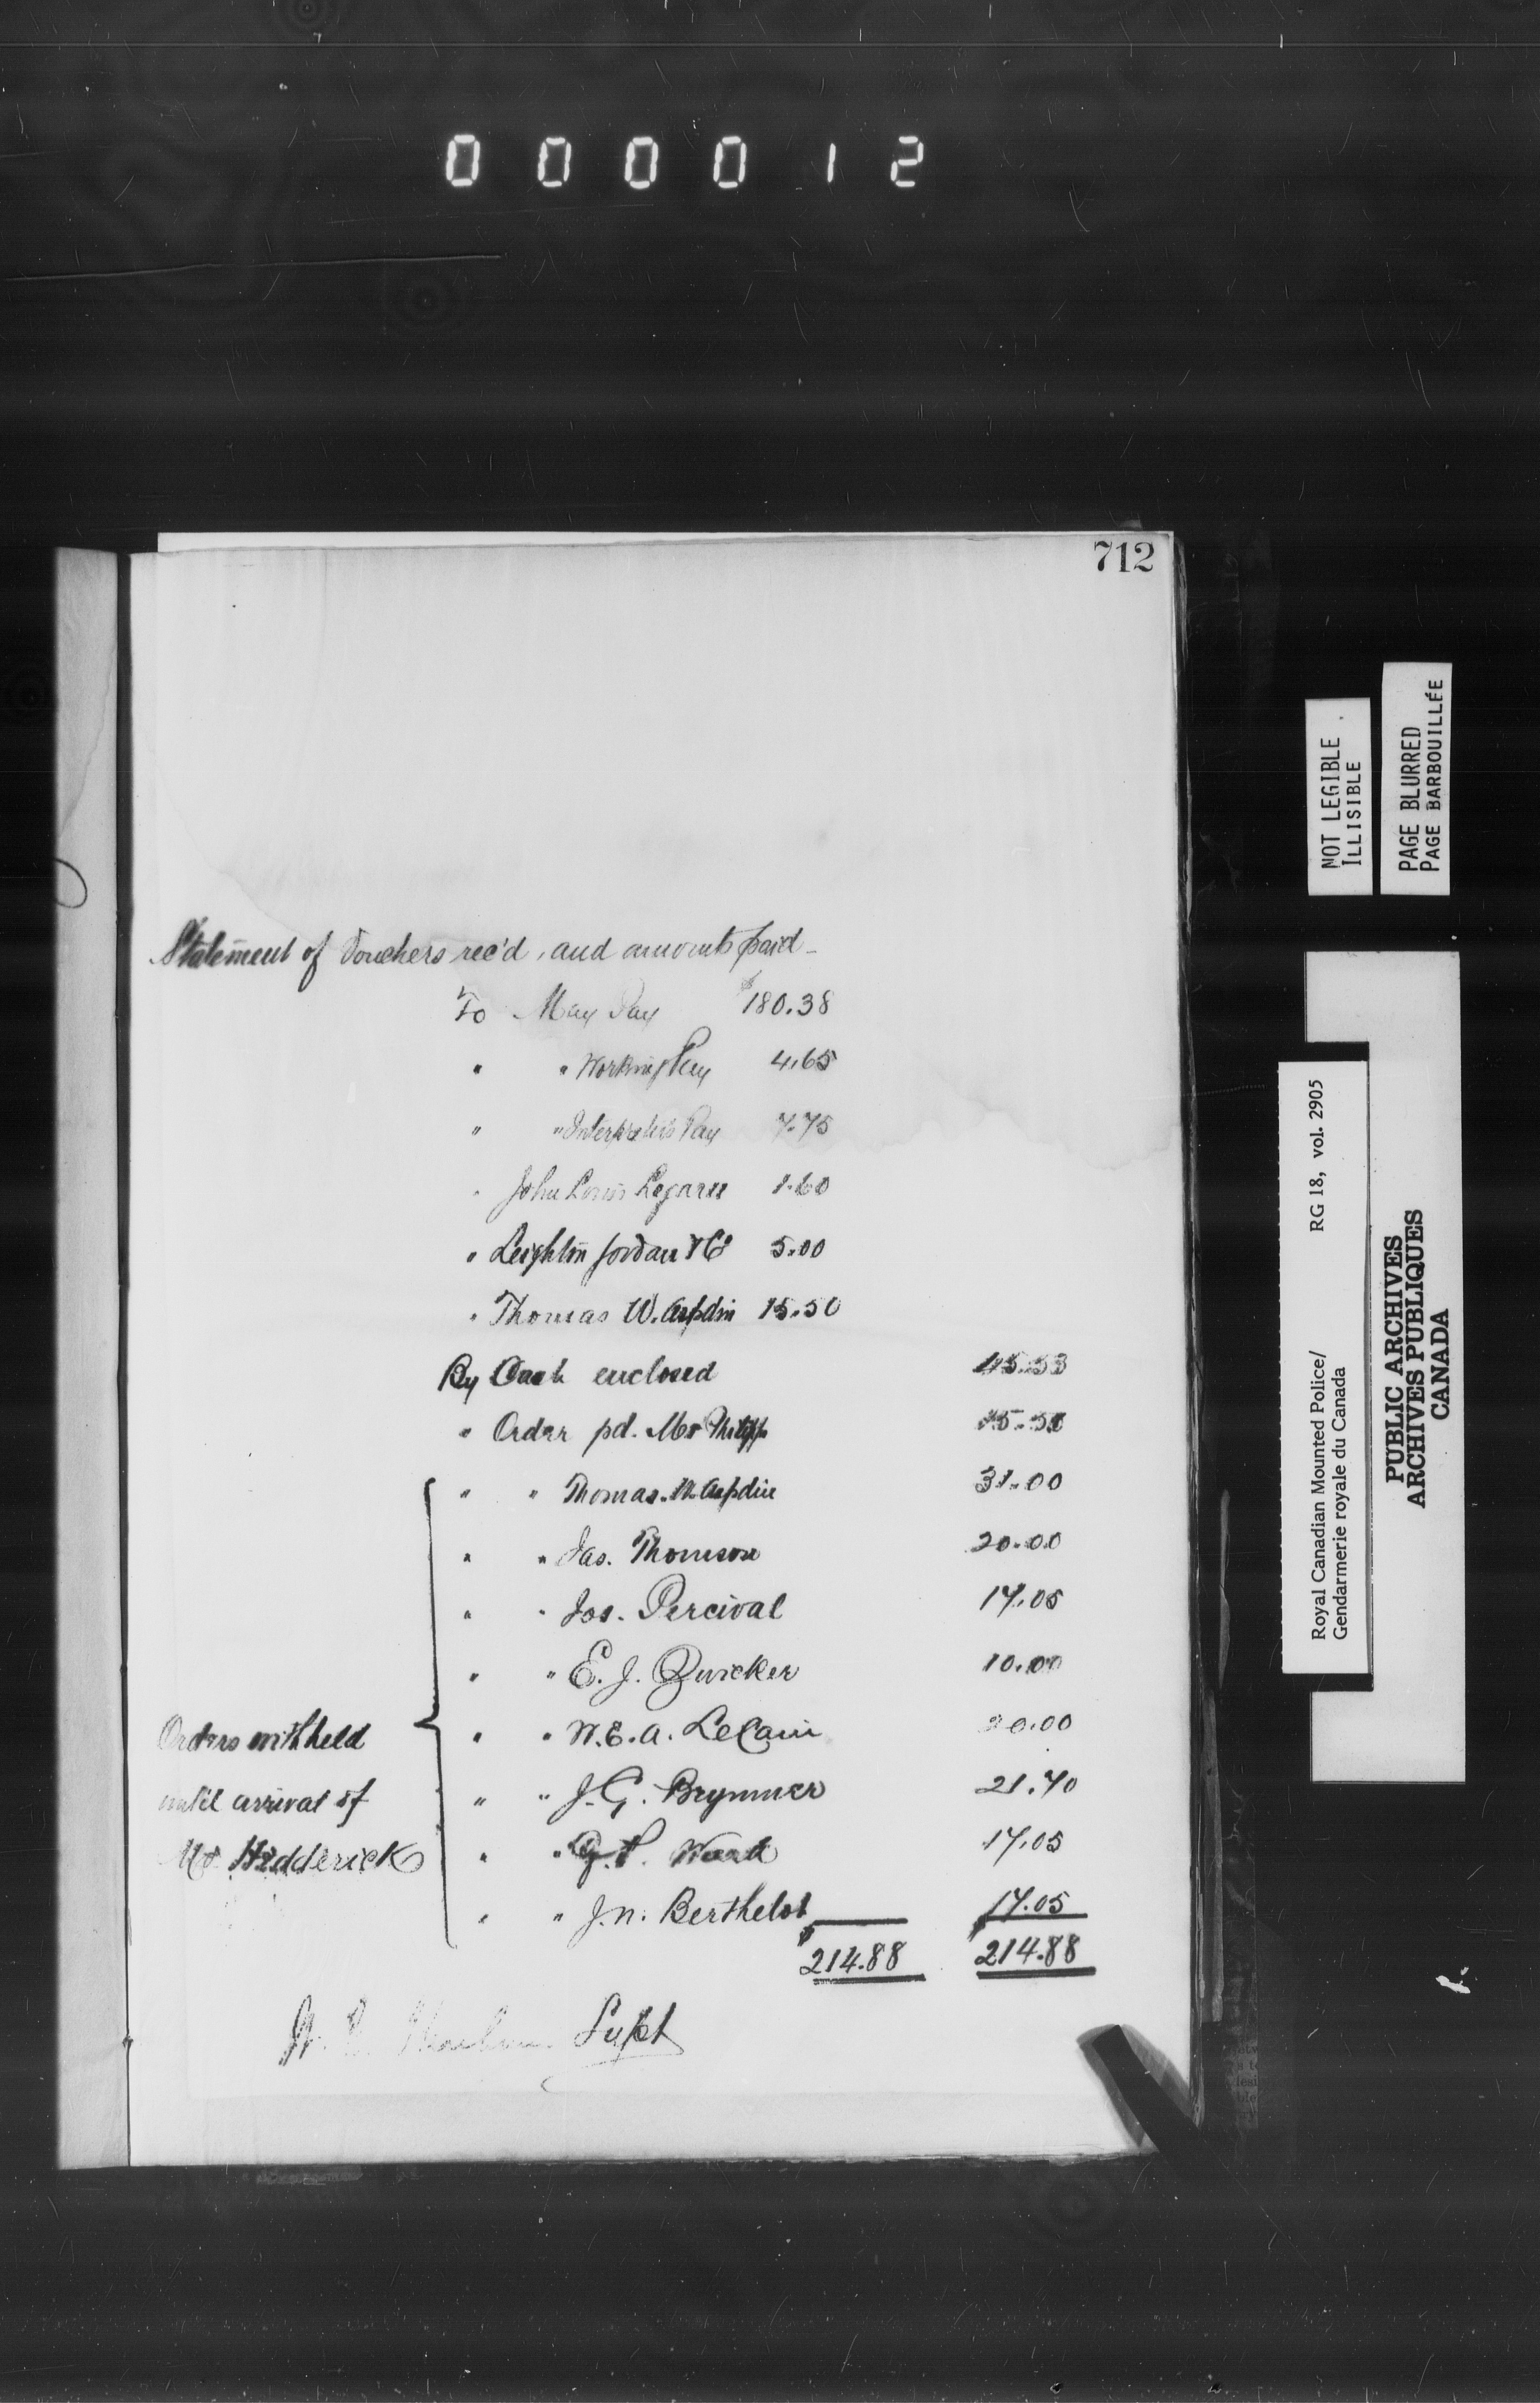 000012
712
Statement of Vouchers rec'd, and amounts paid -
To May Pay $180.38
" " Working Pay 4.65
" " Interpreters Pay 7.75
" John Louis Legarre 1.60
" Leighton Jordan & Co 5.00
" Thomas W. Aspdin 15.50
By Cash enclosed 45.53
" Order pd. Mr Philipp 15.50
" " Thomas W. Aspdin 31.00
" " Jas. Thomson 20.00
" " Jos. Percival 17.05
" " E. J. Zwicker 10.00
Orders withheld " " W.E.A. LeCain 20.00
until arrival of " " J.G. Brymner 21.70
Mr. Hedderick " " Ward 17.05
" " J.N. Berthelot 17.05
$214.88 $214.88
Supt
NOT LEGIBLE
ILLISIBLE
PAGE BLURRED
PAGE BARBOUILLÉE
Royal Canadian Mounted Police/ RG 18, vol. 2905
Gendarmerie royale du Canada
PUBLIC ARCHIVES
ARCHIVES PUBLIQUES
CANADA